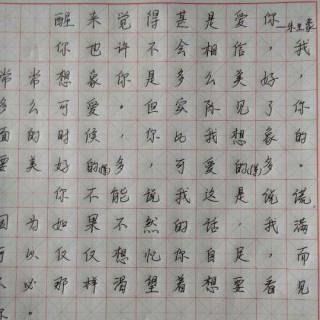 醒来觉得甚是爱你 —朱生豪
你也许不会相信，我
常常想象你是多么美好，
多么可爱。但实际见了你
面的时候，你比我想象的
要美好的得多，可爱的得多。
你不能说我这是说谎，
因为如果不然的话，我满
可以仅仅想忆你自足，而
不必那样渴望着想要看见
你。